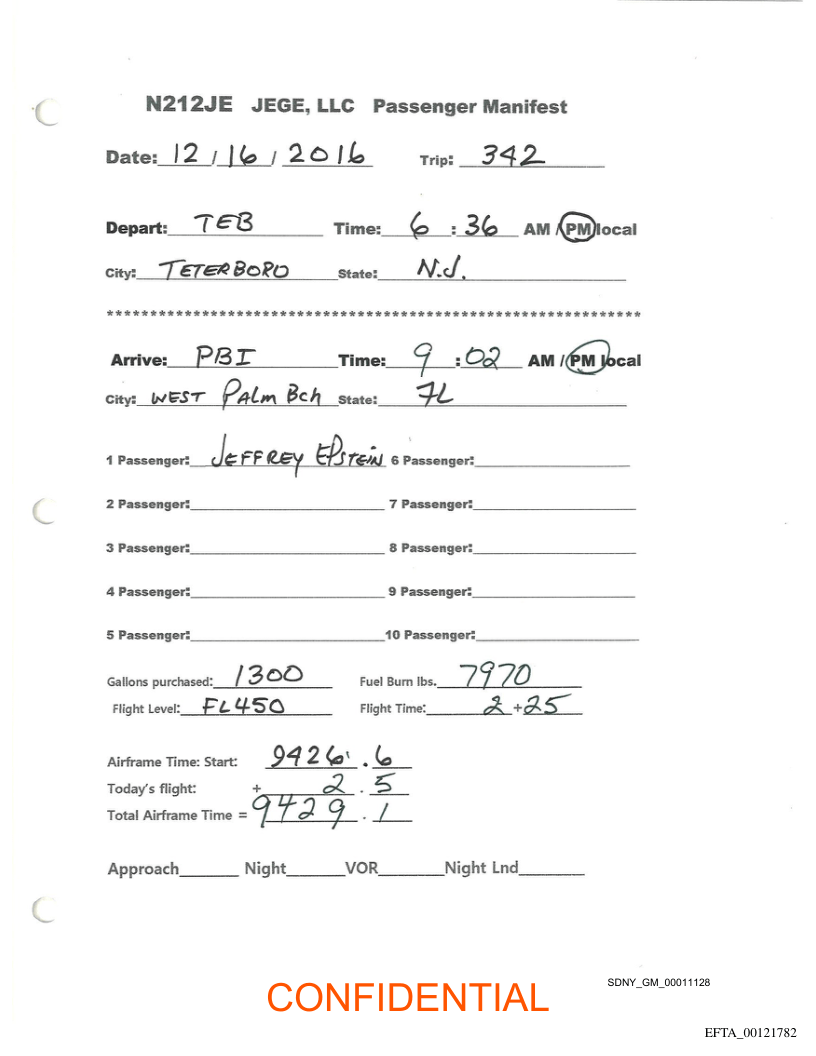 N212JE JEGE, LLC Passenger Manifest
Date: 12 / 16 / 2016 Trip: 342
Depart: TEB Time: 6 : 36 AM / PM local
City: TETERBORO State: N.J.
*************************************************************
Arrive: PBI Time: 9 : 02 AM / PM local
City: WEST PALM BCh State: FL
1 Passenger: JEFFREY EPSTEIN 6 Passenger:
2 Passenger: 7 Passenger:
3 Passenger: 8 Passenger:
4 Passenger: 9 Passenger:
5 Passenger: 10 Passenger:
Gallons purchased: 1300 Fuel Burn lbs. 7970
Flight Level: FL450 Flight Time: 2 + 25
Airframe Time: Start: 9426 . 6
Today's flight: + 2 . 5
Total Airframe Time = 9429 . 1
Approach______ Night______VOR_______Night Lnd_______
SDNY_GM_00011128
CONFIDENTIAL
EFTA_00121782